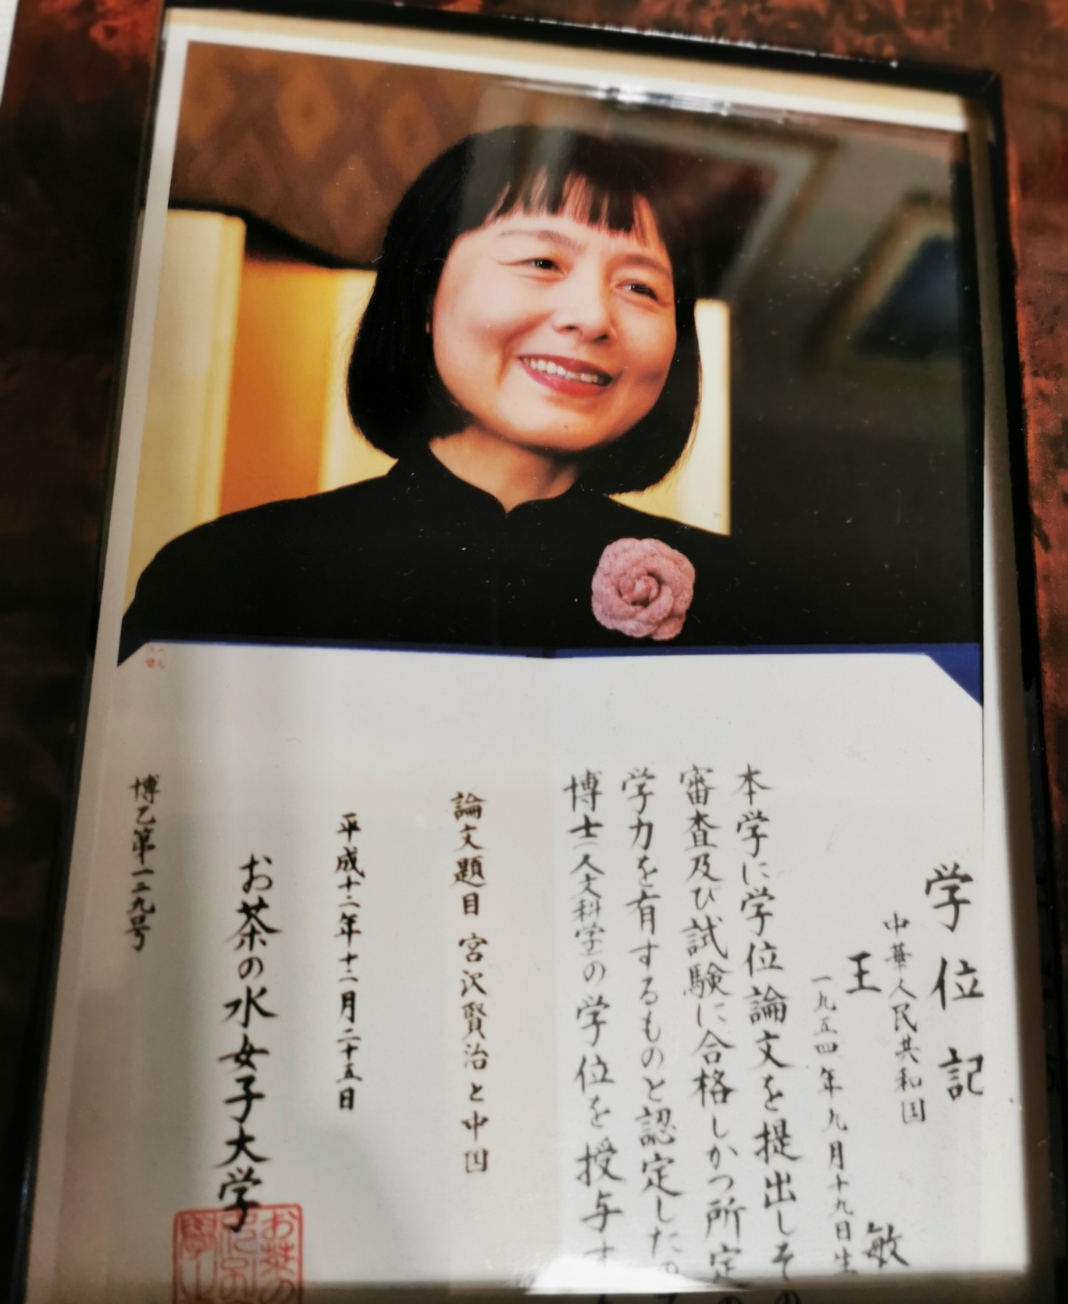 学位記
中華人民共和国
王 敏
一九五四年九月十九日生
本学に学位論文を提出しその
審査及び試験に合格しかつ所定の
学力を有するものと認定したので
博士(人文科学)の学位を授与す
論文題目 宮沢賢治と中国
平成十二年十二月二十五日
お茶の水女子大学
博乙第一二九号